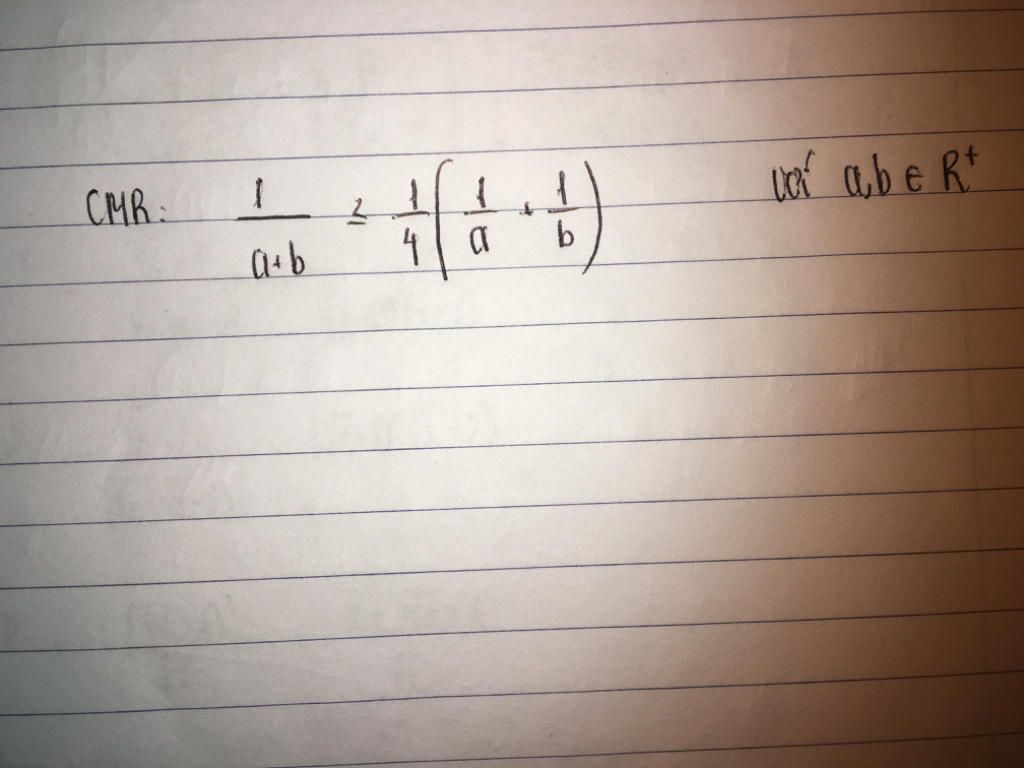 CMR: 1/(a+b) ≥ 1/4 (1/a + 1/b) với a,b ∈ R⁺